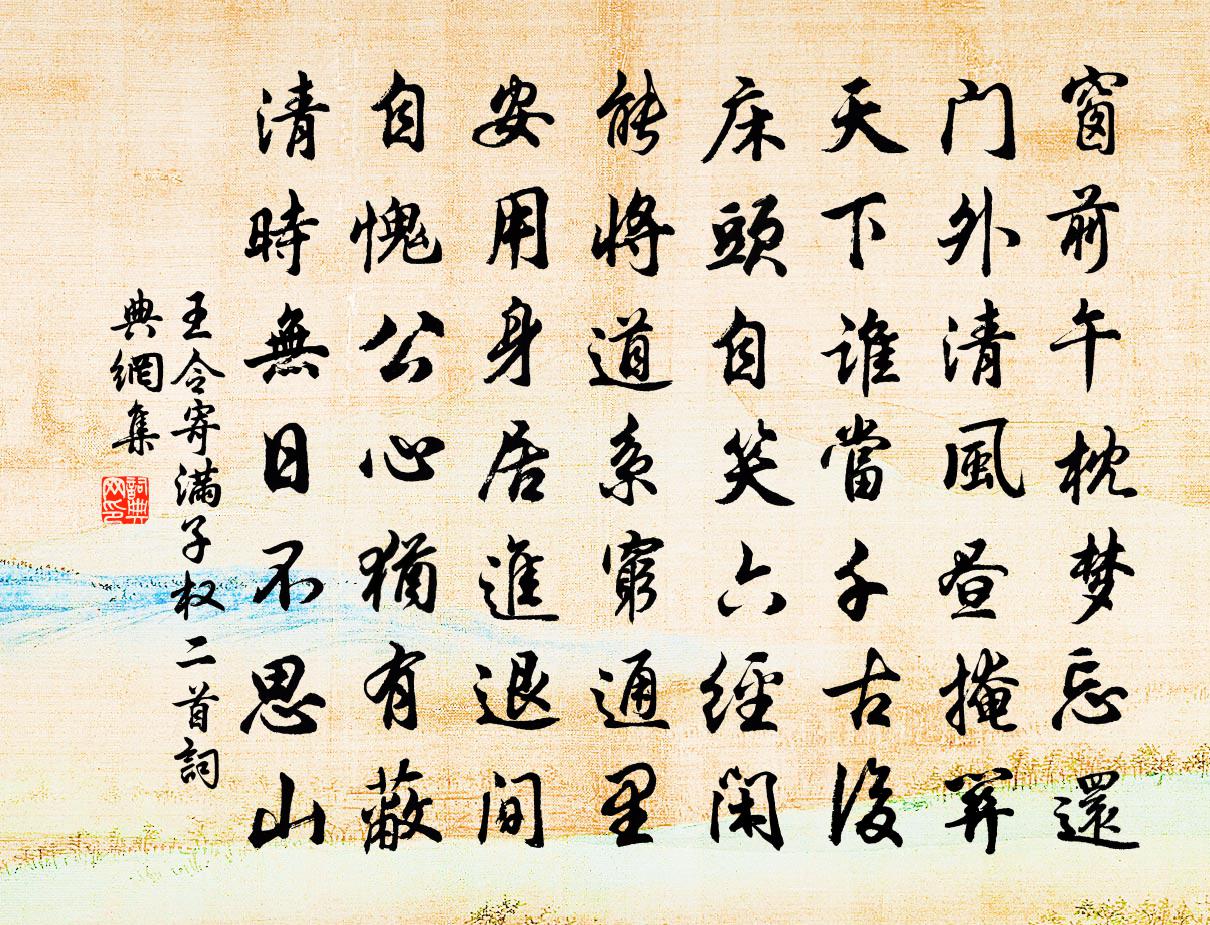 窗前午枕梦忘還
门外清風昼掩关
天下誰當千古後
床頭自笑六經闲
能將道系窮通里
安用身居進退间
自愧公心猶有蔽
清時無日不思山
王令寄满子权二首詞
典網集
詞典
网印